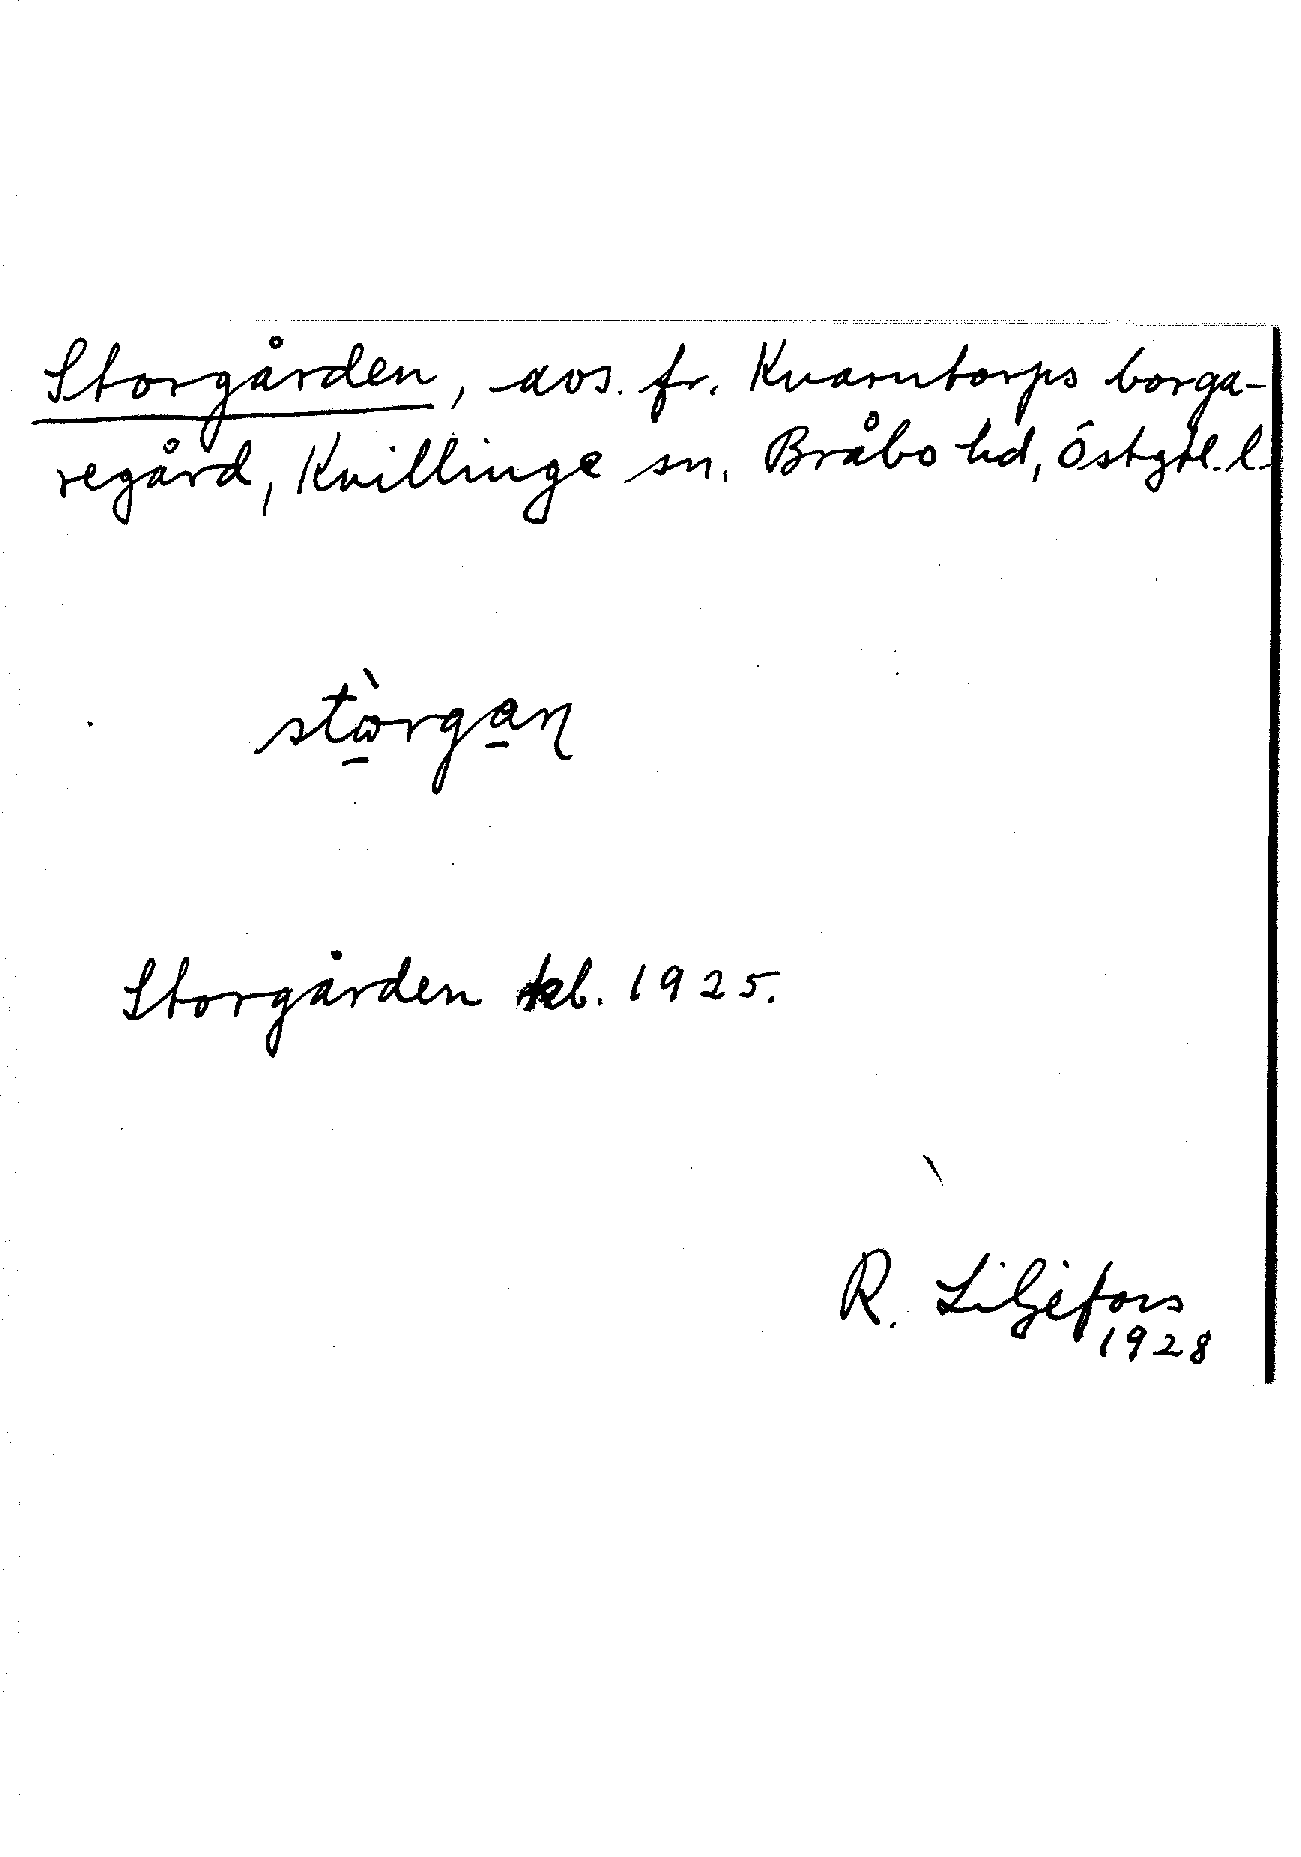 Storgården, avs. fr. Kvarntorps borga-
regård, Kvillinge sn. Bråbo hd, Östgtl. l.
stòrgan
Storgården kb. 1925.
R. Liljefors
1928